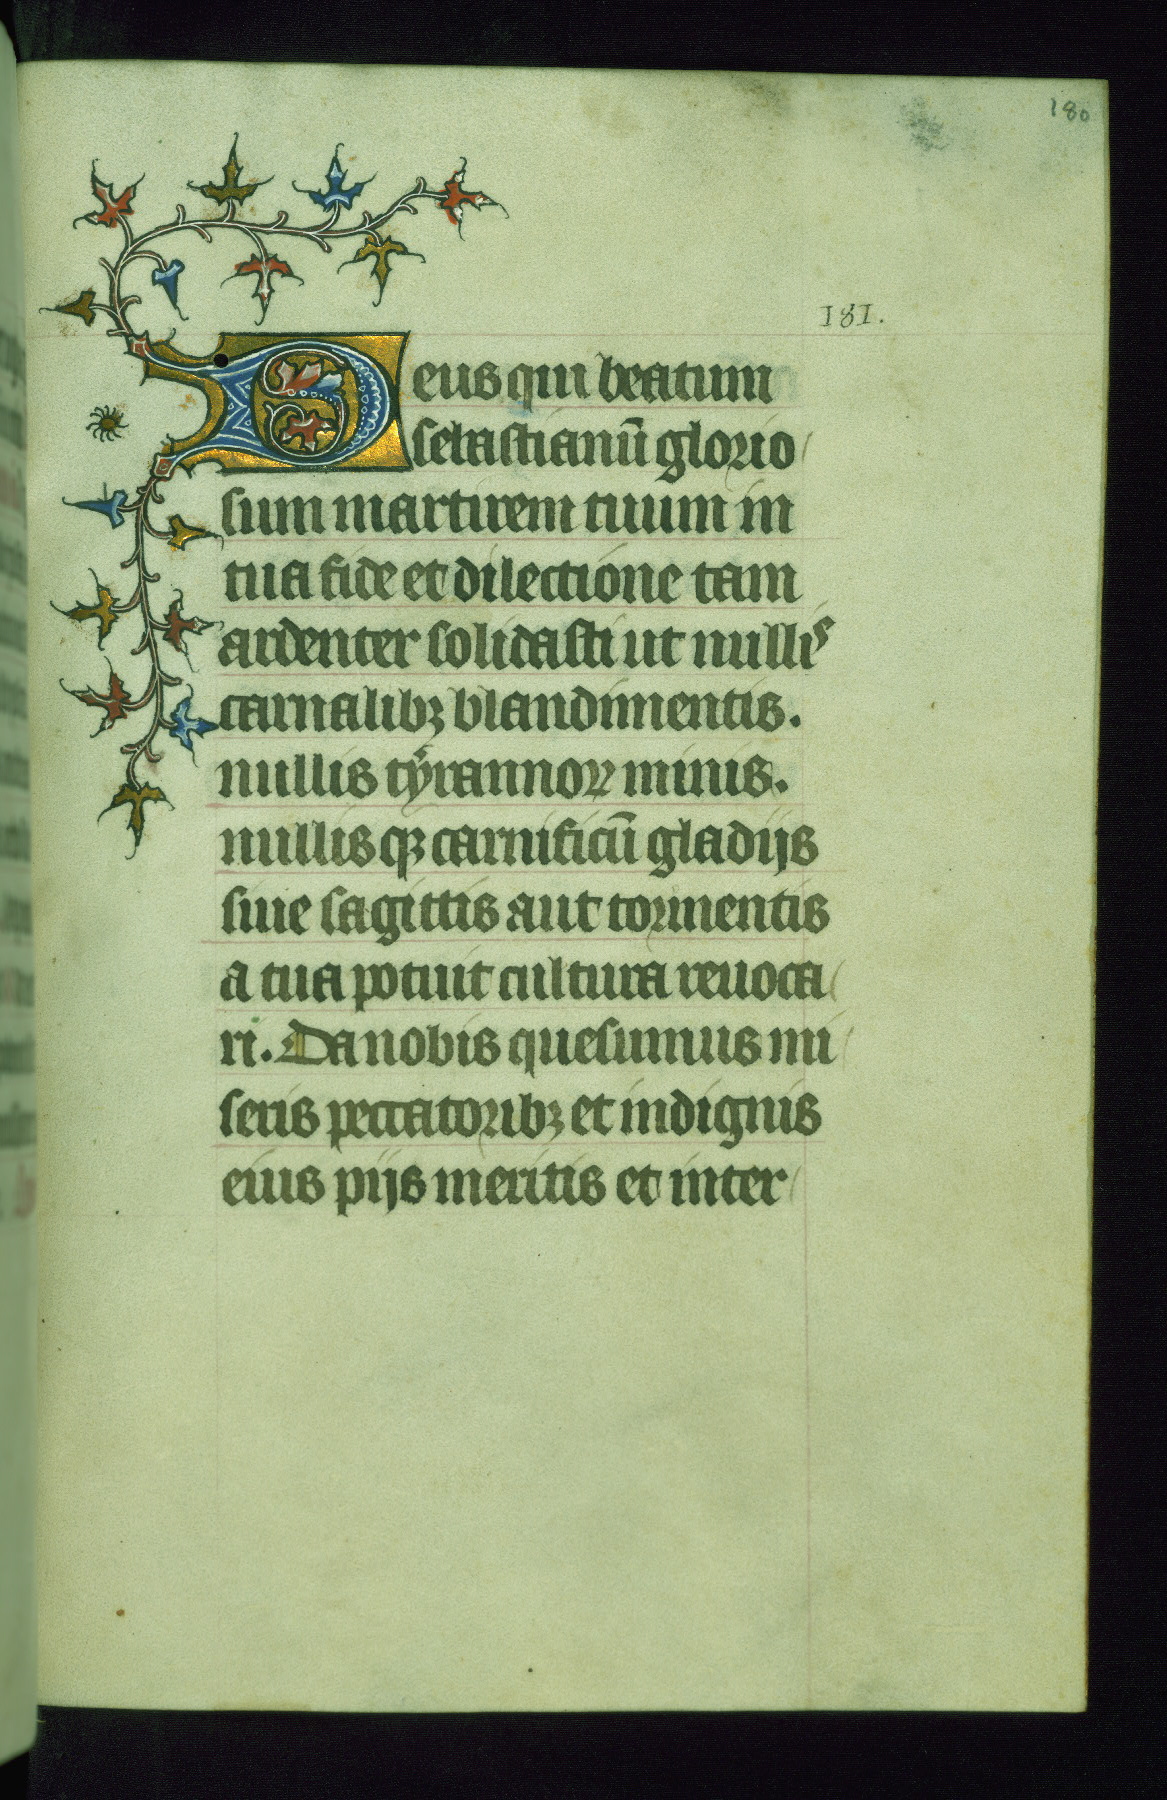 180
181.
Deus qui beatum
sebastianū glorio
sum martirem tuum in
tua fide et dilectione tam
ardenter solidasti ut nullis
carnalibꝫ blandimentis.
nullis tẏrannoꝝ minis.
nullis qꝫ carnificū gladijs
siue sagittis aut tormentis
a tua potuit cultura reuoca
ri. Da nobis quesumus mi
seris peccatoribꝫ et indignis
eius pijs meritis et inter